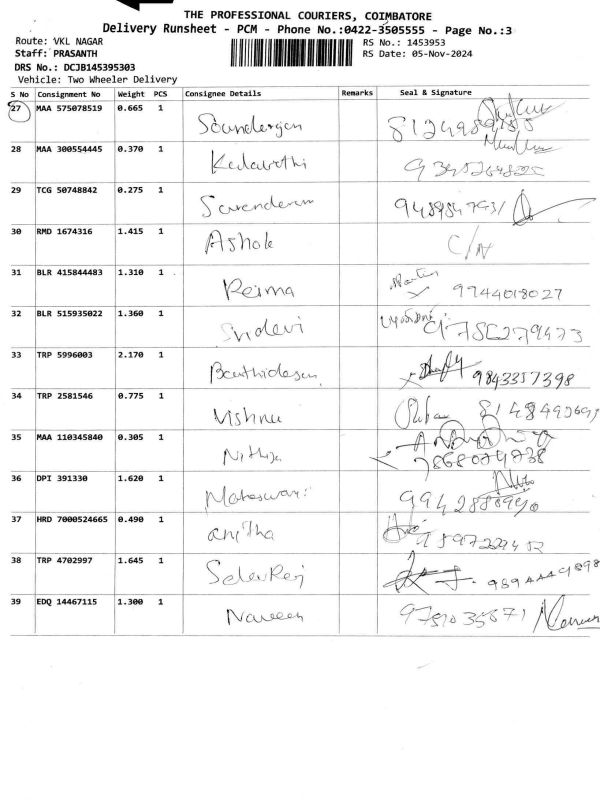 THE PROFESSIONAL COURIERS, COIMBATORE
Delivery Runsheet - PCM - Phone No.:0422-3505555 - Page No.:3
Route: VKL NAGAR RS No.: 1453953
Staff: PRASANTH RS Date: 05-Nov-2024
DRS No.: DCJB145395303
Vehicle: Two Wheeler Delivery
S No Consignment No Weight PCS Consignee Details Remarks Seal & Signature
27 MAA 575078519 0.665 1
28 MAA 300554445 0.370 1
29 TCG 50748842 0.275 1
30 RMD 1674316 1.415 1 Ashok C/N
31 BLR 415844483 1.310 1 Reima 9944018027
32 BLR 515935022 1.360 1 Sridevi
33 TRP 5996003 2.170 1 9843357398
34 TRP 2581546 0.775 1 Vishnu
35 MAA 110345840 0.305 1 Nithya
36 DPI 391330 1.620 1 Maheswari
37 HRD 7000524665 0.490 1 anitha
38 TRP 4702997 1.645 1 Selvaraj
39 EDQ 14467115 1.300 1 Naveen